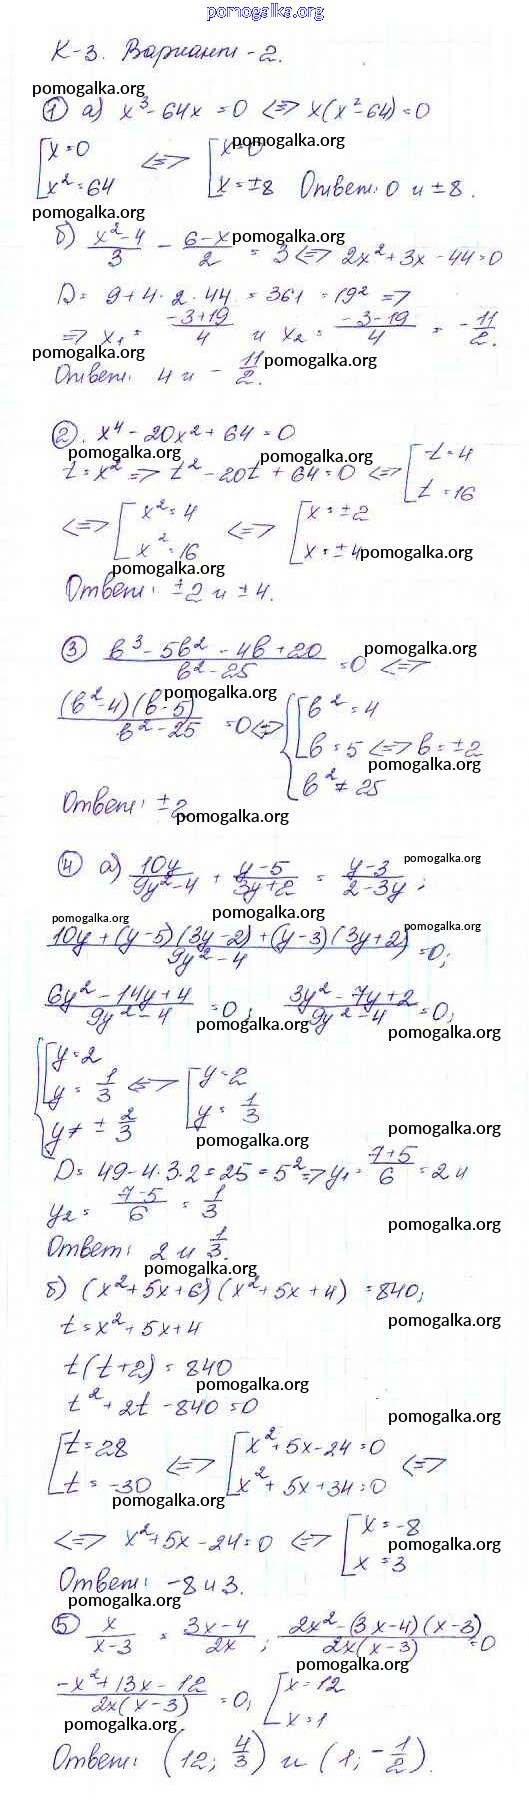 pomogalka.org
К-3. Вариант-2.
pomogalka.org
① а) x³ - 64x = 0 <=> x(x² - 64) = 0
pomogalka.org
[x = 0 <=> [x = 0
x² = 64 x = ±8 Ответ: 0 и ±8.
pomogalka.org
б) (x² - 4)/3 - (6 - x)/2 = 3 <=> 2x² + 3x - 44 = 0
pomogalka.org
D = 9 + 4 · 2 · 44 = 361 = 19² =>
=> x₁ = (-3 + 19)/4 и x₂ = (-3 - 19)/4 = -11/2.
pomogalka.org pomogalka.org
Ответ: 4 и -11/2.
②. x⁴ - 20x² + 64 = 0
pomogalka.org pomogalka.org
t = x² => t² - 20t + 64 = 0 <=> [t = 4
t = 16
<=> [x² = 4 <=> [x = ±2
x² = 16 x = ±4
pomogalka.org
pomogalka.org
Ответ: ±2 и ±4.
③ (b³ - 5b² - 4b + 20)/(b² - 25) = 0 <=>
pomogalka.org
pomogalka.org
(b² - 4)(b - 5)/(b² - 25) = 0 <=> {[b² = 4
b = 5 <=> b = ±2
b² ≠ 25
pomogalka.org
Ответ: ±2
pomogalka.org
④ а) 10y/(9y² - 4) + (y - 5)/(3y + 2) = (y - 3)/(2 - 3y);
pomogalka.org
pomogalka.org pomogalka.org pomogalka.org
(10y + (y - 5)(3y - 2) + (y - 3)(3y + 2))/(9y² - 4) = 0;
(6y² - 14y + 4)/(9y² - 4) = 0; (3y² - 7y + 2)/(9y² - 4) = 0;
pomogalka.org pomogalka.org
{[y = 2
y = 1/3 <=> [y = 2
y ≠ ±2/3 y = 1/3
pomogalka.org pomogalka.org
D = 49 - 4·3·2 = 25 = 5² => y₁ = (7 + 5)/6 = 2 и
y₂ = (7 - 5)/6 = 1/3
pomogalka.org
Ответ: 2 и 1/3.
pomogalka.org
б) (x² + 5x + 6)(x² + 5x + 4) = 840;
t = x² + 5x + 4
pomogalka.org
t(t + 2) = 840
pomogalka.org
t² + 2t - 840 = 0
pomogalka.org
[t = 28 <=> [x² + 5x - 24 = 0 <=>
t = -30 x² + 5x + 34 = 0
pomogalka.org pomogalka.org
<=> x² + 5x - 24 = 0 <=> [x = -8
x = 3
pomogalka.org
Ответ: -8 и 3.
pomogalka.org
⑤ x/(x - 3) = (3x - 4)/2x; (2x² - (3x - 4)(x - 3))/(2x(x - 3)) = 0
pomogalka.org
(-x² + 13x - 12)/(2x(x - 3)) = 0; [x = 12
x = 1
pomogalka.org pomogalka.org
Ответ: (12; 4/3) и (1; -1/2).